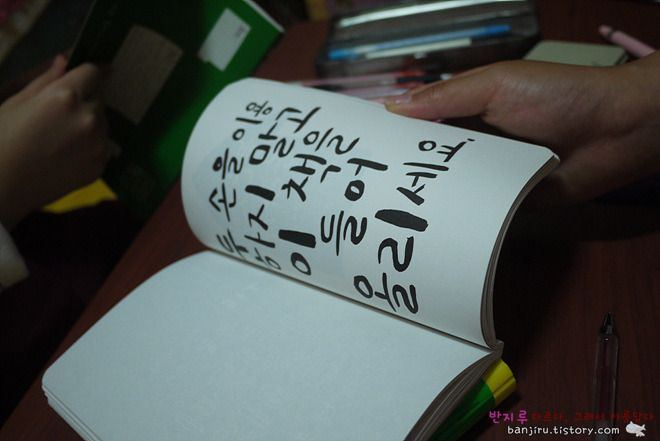 두 손을 이용
하지 말고
이 책을
들어
올리세요.
반지루 다르다, 그래서 아름답다
banjiru.tistory.com